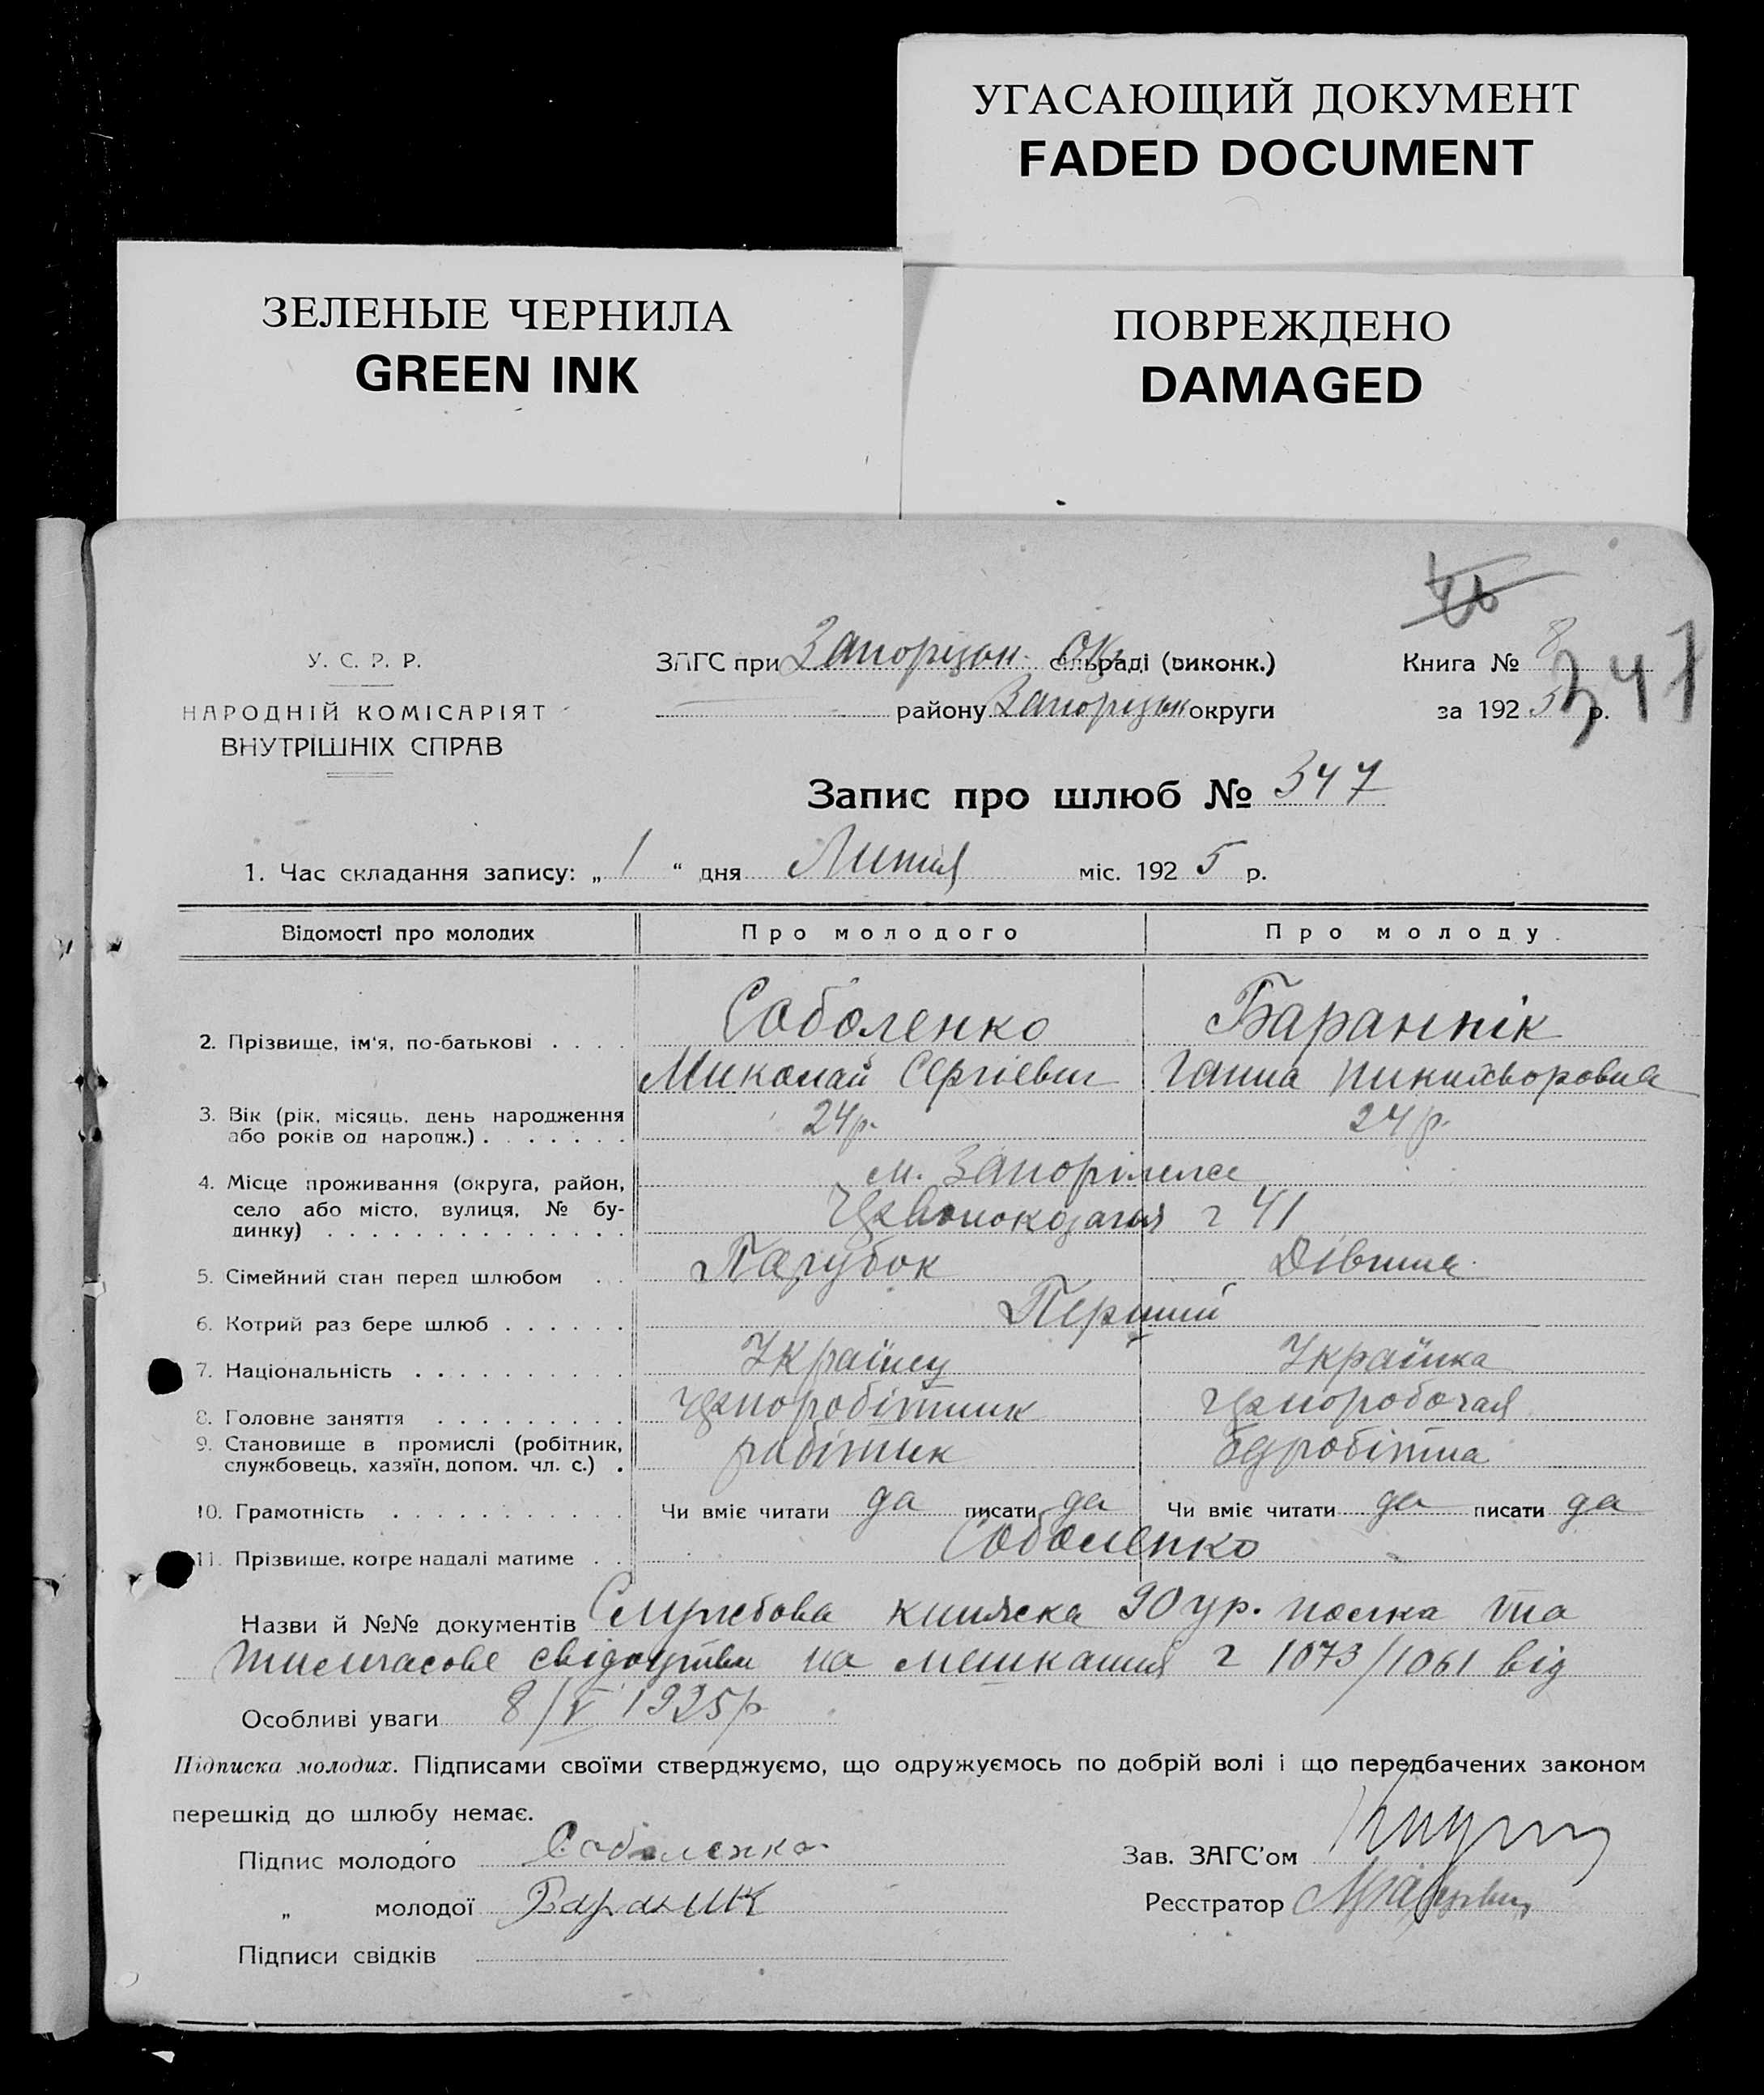 УГАСАЮЩИЙ ДОКУМЕНТ
FADED DOCUMENT
ЗЕЛЕНЫЕ ЧЕРНИЛА
GREEN INK
ПОВРЕЖДЕНО
DAMAGED
У. С. Р. Р.
НАРОДНІЙ КОМІСАРІЯТ
ВНУТРІШНІХ СПРАВ
ЗАГС при Запорізьк. Окр. сільраді (виконк.)
району Запорізьк округи
Книга № 8
за 1925 р.
347
Запис про шлюб № 347
1. Час складання запису: „ 1 “ дня Липня міс. 1925 р.
Відомості про молодих Про молодого Про молоду
2. Прізвище, ім'я, по-батькові . . . . Соболенко Баранник
Миколай Сергієвич Ганна Никихворовна
3. Вік (рік, місяць, день народження
або років од народж.) . . . . . . . 24 р. 24 р.
4. Місце проживання (округа, район,
село або місто, вулиця, № бу-
динку) . . . . . . . . . . . . . . м. Запоріжжє
Червонокозача ч 41
5. Сімейний стан перед шлюбом . . Парубок Дівчина
6. Котрий раз бере шлюб . . . . . . Перший
7. Національність . . . . . . . . . . Українец Українка
8. Головне заняття . . . . . . . . . Чорноробітник Чорноробочая
9. Становище в промислі (робітник,
службовець, хазяїн, допом. чл. с.) . робітник безробітна
10. Грамотність . . . . . . . . . . . Чи вміє читати да писати да Чи вміє читати да писати да
11. Прізвище, котре надалі матиме . . Соболенко
Назви й №№ документів Службова книжка 90 ур. полка та
тимчасове свідоцтво на мешкання ч 1073/1061 від
Особливі уваги 8/V 1925 р.
Підписка молодих. Підписами своїми стверджуємо, що одружуємось по добрій волі і що передбачених законом
перешкід до шлюбу немає.
Підпис молодого Соболенко
„ молодої Бараник
Підписи свідків
Зав. ЗАГС'ом
Реєстратор